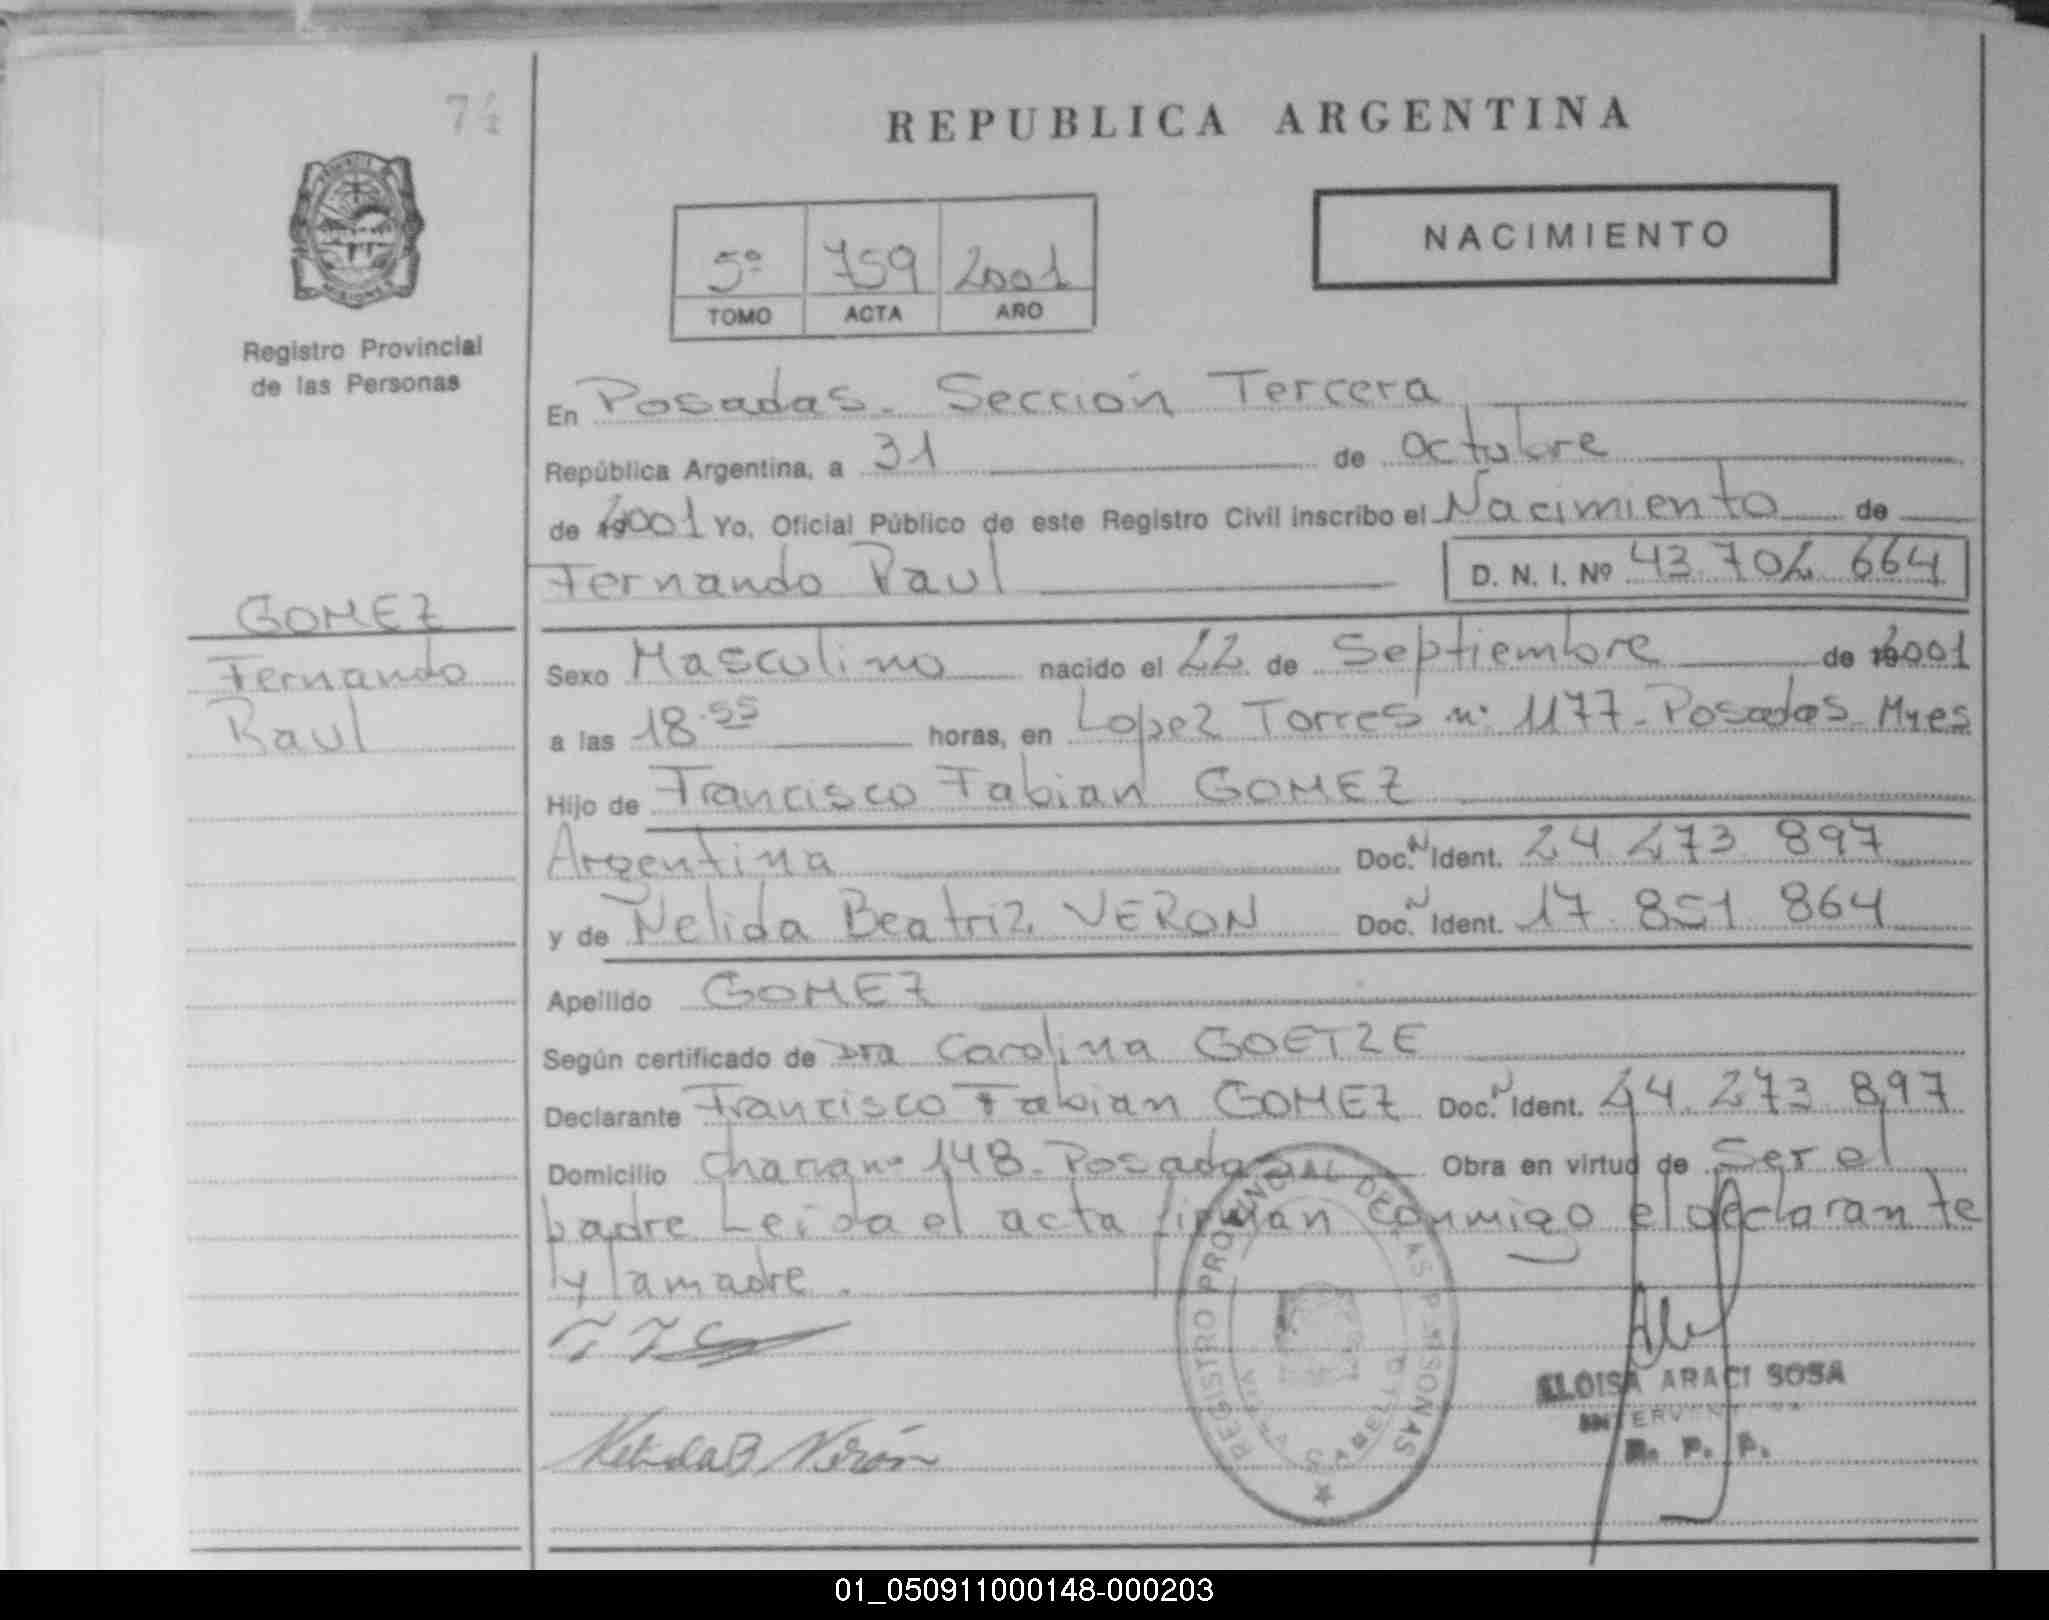 74
REPUBLICA ARGENTINA
NACIMIENTO
5º 759 2001
TOMO ACTA AÑO
Registro Provincial
de las Personas
En Posadas. Sección Tercera
República Argentina, a 31 de octubre
de 2001 Yo, Oficial Público de este Registro Civil inscribo el Nacimiento de
Fernando Raul D. N. I. Nº 43 702 664
GOMEZ
Fernando
Raul
Sexo Masculino nacido el 22 de Septiembre de 2001
a las 18.55 horas, en Lopez Torres nº 1177. Posadas. Mnes
Hijo de Francisco Fabian GOMEZ
Argentina Doc. N Ident. 24 273 897
y de Nelida Beatriz VERON Doc. N Ident. 17 851 864
Apellido GOMEZ
Según certificado de Dra Carolina GOETZE
Declarante Francisco Fabian GOMEZ Doc. N Ident. 24 273 897
Domicilio nº 148. Posadas Obra en virtud de Ser el
padre Leida el acta firman conmigo el declarante
y la madre.
Nelida B Verón
REGISTRO PROVINCIAL DE LAS PERSONAS
ELOISA ARACI SOSA
R. P. P.
01_050911000148-000203